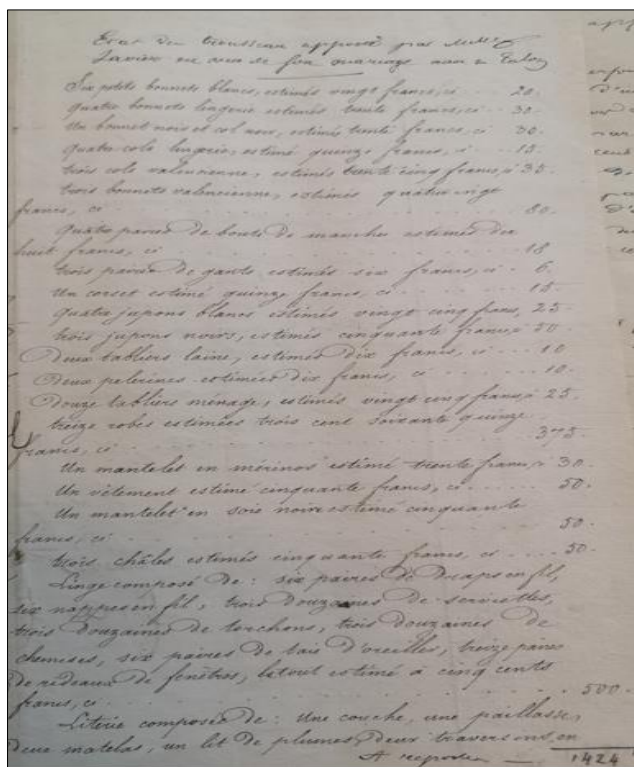 Etat du trousseau apporté par
en vue de son mariage avec
Six petits bonnets blancs, estimés vingt francs, ci ... 20.
quatre bonnets lingerie estimés trente francs, ci ... 30.
Un bonnet noir et col noir, estimés trente francs, ci 30.
quatre cols lingerie, estimé quinze francs, ci ... 15.
trois cols valencienne, estimés trente cinq francs, ci 35.
trois bonnets valencienne, estimés quatre vingt
francs, ci ... 80
quatre paires de bouts de manches estimés dix
huit francs, ci ... 18
trois paires de gants estimés six francs, ci .. 6.
Un corset estimé quinze francs, ci ... 15.
quatre jupons blancs estimés vingt cinq francs, 25.
trois jupons noirs, estimés cinquante francs, ci 50.
Deux tabliers laine, estimés dix francs, ci ... 10
Deux pelerines estimées dix francs, ci ... 10.
Douze tabliers ménage, estimés vingt cinq francs, ci 25.
treize robes estimées trois cent soixante quinze
francs, ci ... 375.
Un mantelet en mérinos estimé trente francs, ci 30.
Un vêtement estimé cinquante francs, ci ... 50.
Un mantelet en soie noire estimé cinquante
francs, ci ... 50.
trois châles estimés cinquante francs, ci ... 50.
Linge composé de : six paires de draps en fil,
six nappes en fil, trois douzaines de serviettes,
trois douzaines de torchons, trois douzaines de
chemises, six paires de taies d'oreilles, treize paires
de rideaux de fenêtres, letout estimé à cinq cents
francs, ci ... 500.
Literie composée de : Une couche, une paillasse,
deux matelas, un lit de plumes, deux traversins, en
A reporter — 1424